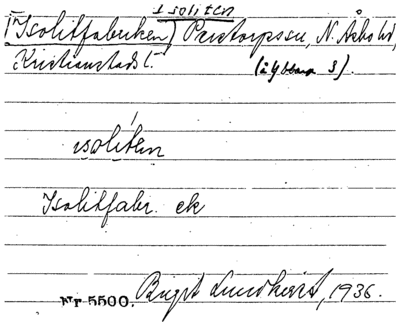 Isoliten
[Isolitfabriken] N. Åsbo hd,
Kristianstads l.
isolíten
Isolitfabr. ek
Nr 5500. Birgit Lundkvist, 1936.